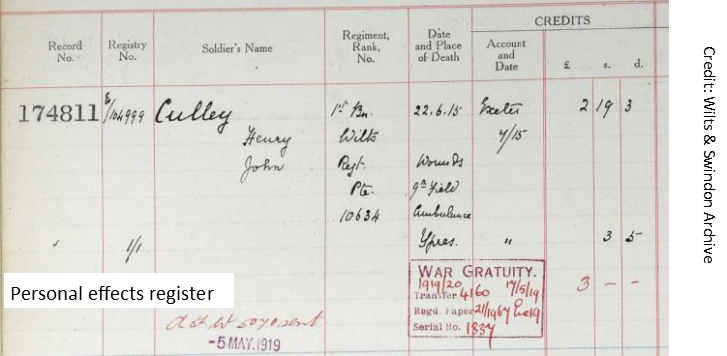 CREDITS
Record No.
Registry No.
Soldier's Name
Regiment, Rank, No.
Date and Place of Death
Account and Date
£ s. d.
174811 E/104999 Culley 1st Bn. 22.6.15 Exeter 2 19 3
Henry Wilts 7/15
John Regt. Wounds
Pte. 9th Field
10634 Ambulance
1/1 Ypres. " 3 5
WAR GRATUITY. 3 – –
1919/20 17/5/19
Transfer 4160
Regd. Paper 21/1967
Serial No. 1837
Personal effects register
-5 MAY. 1919
Credit: Wilts & Swindon Archive